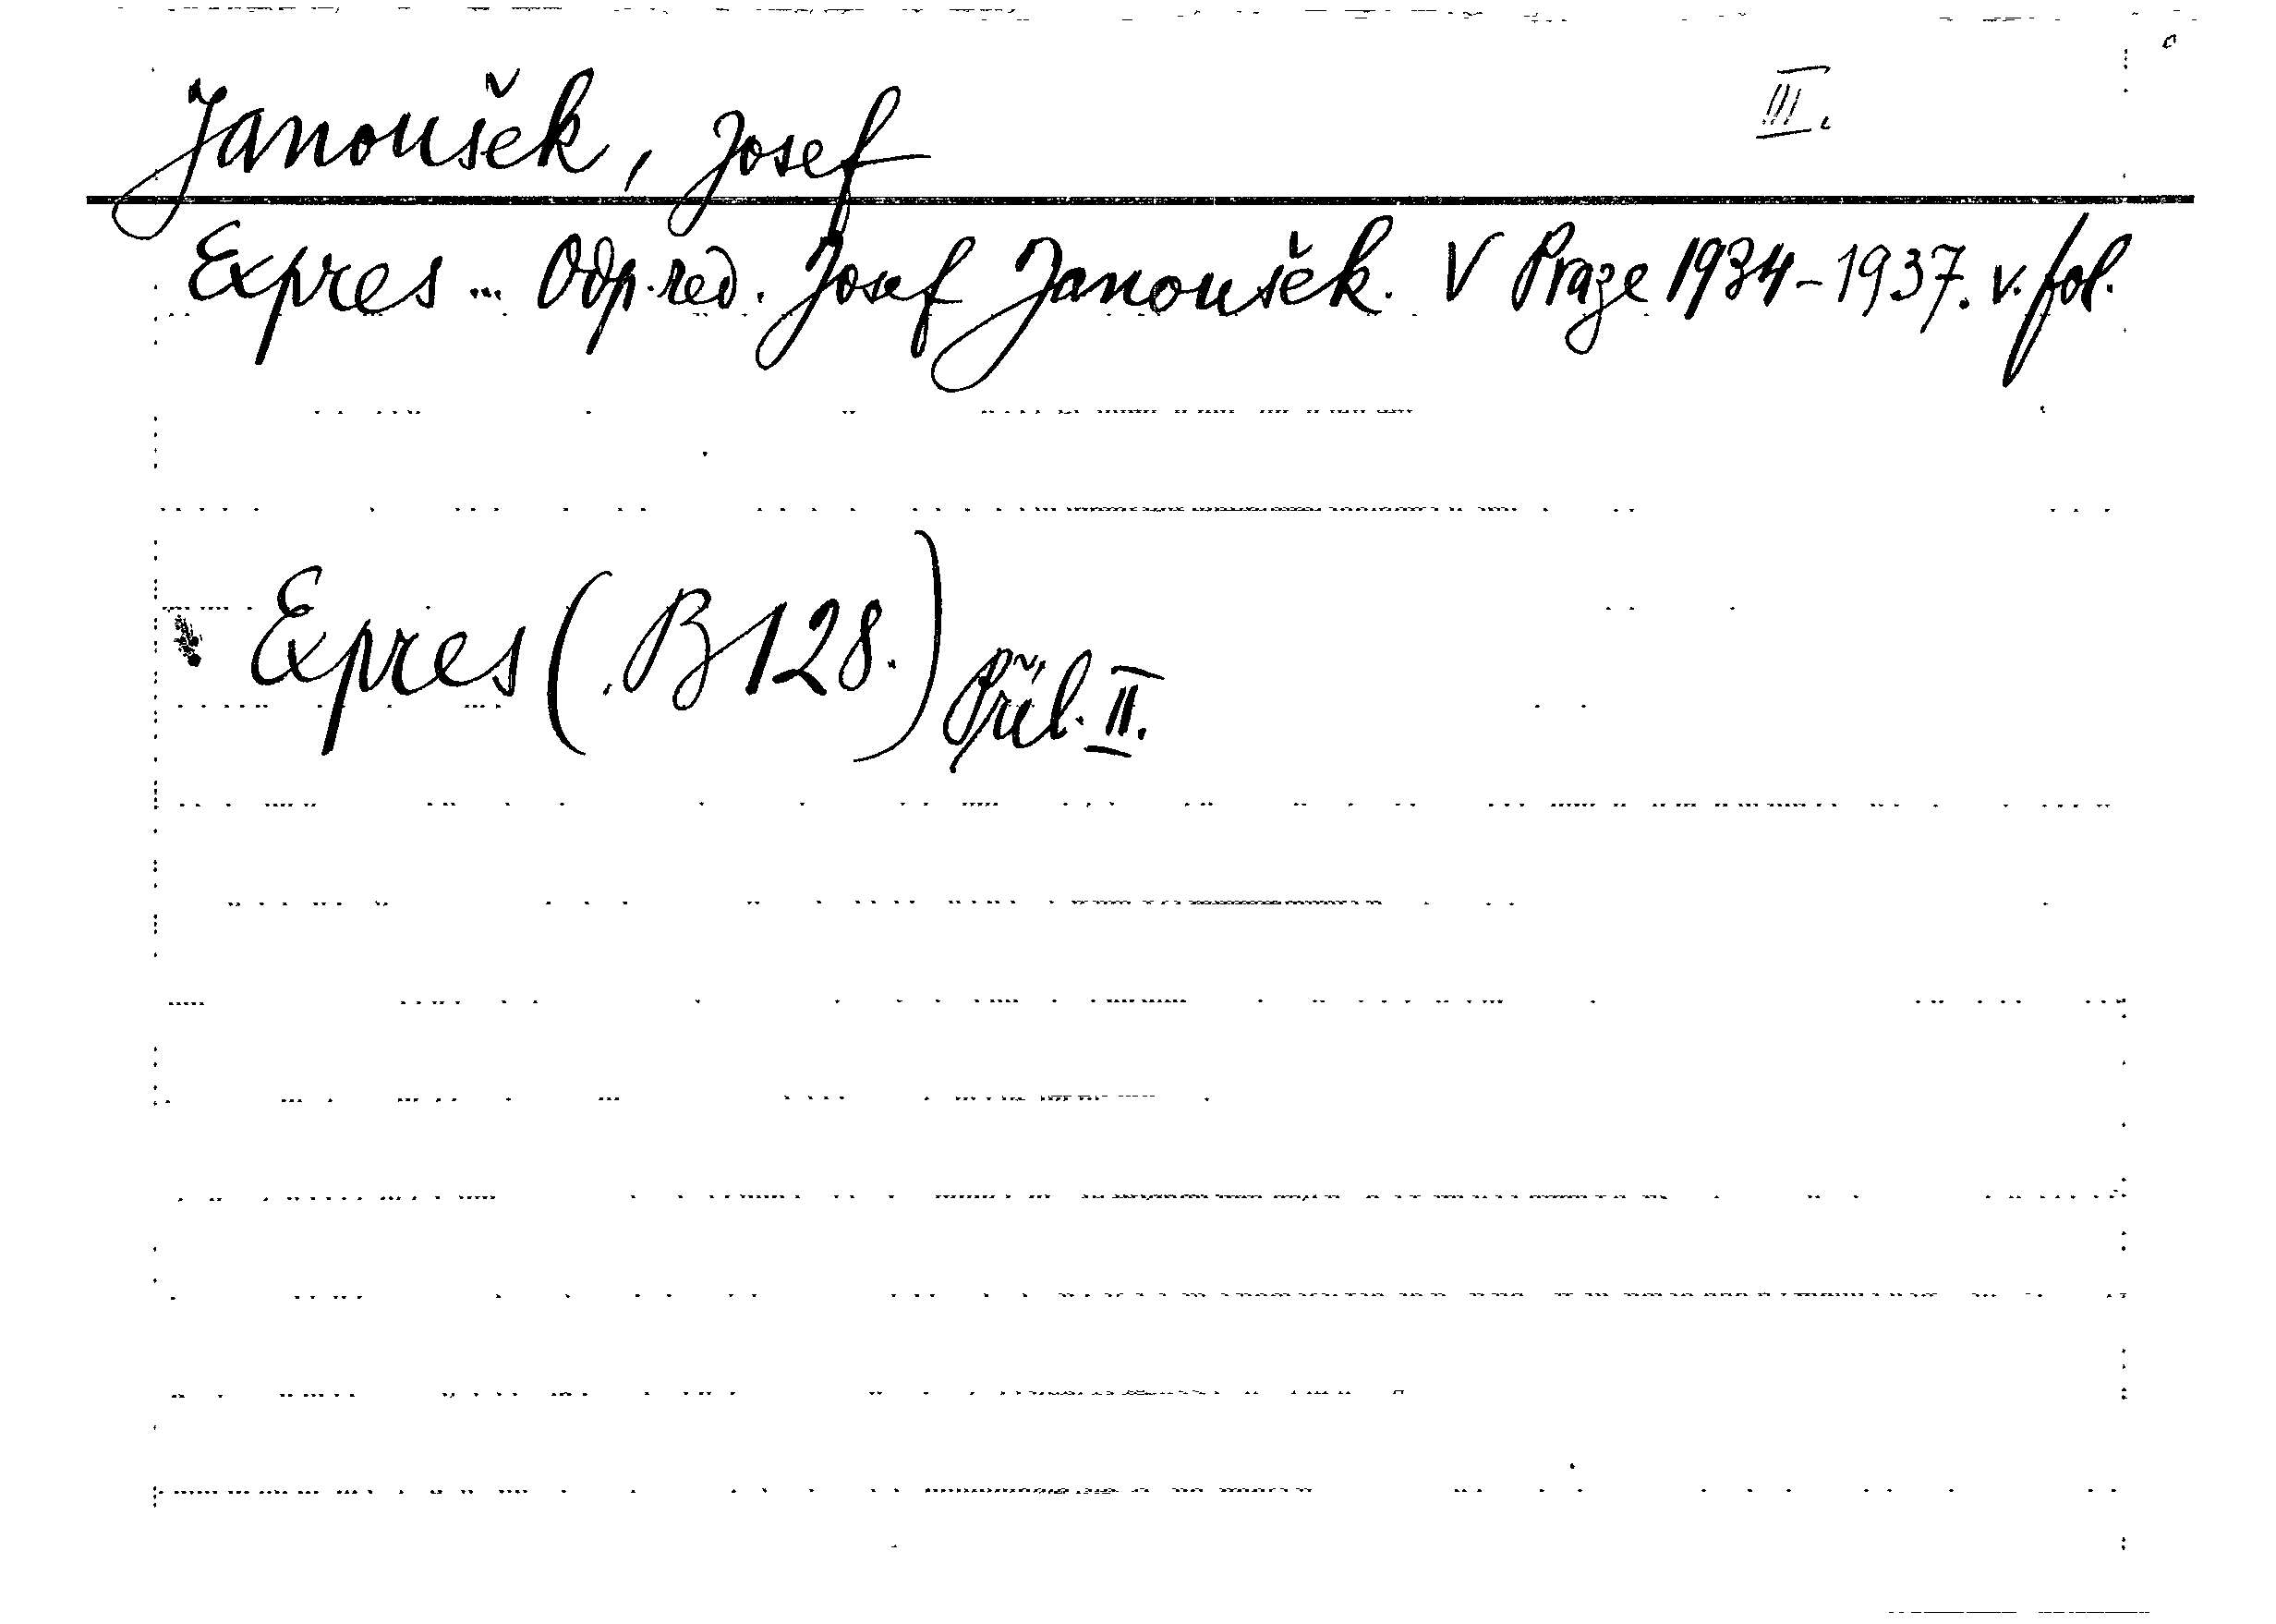 Janoušek, Josef III.
Expres ... Odp. red. Josef Janoušek. V Praze 1934-1937. v. fol.
Expres (B 128.) Příl. II.